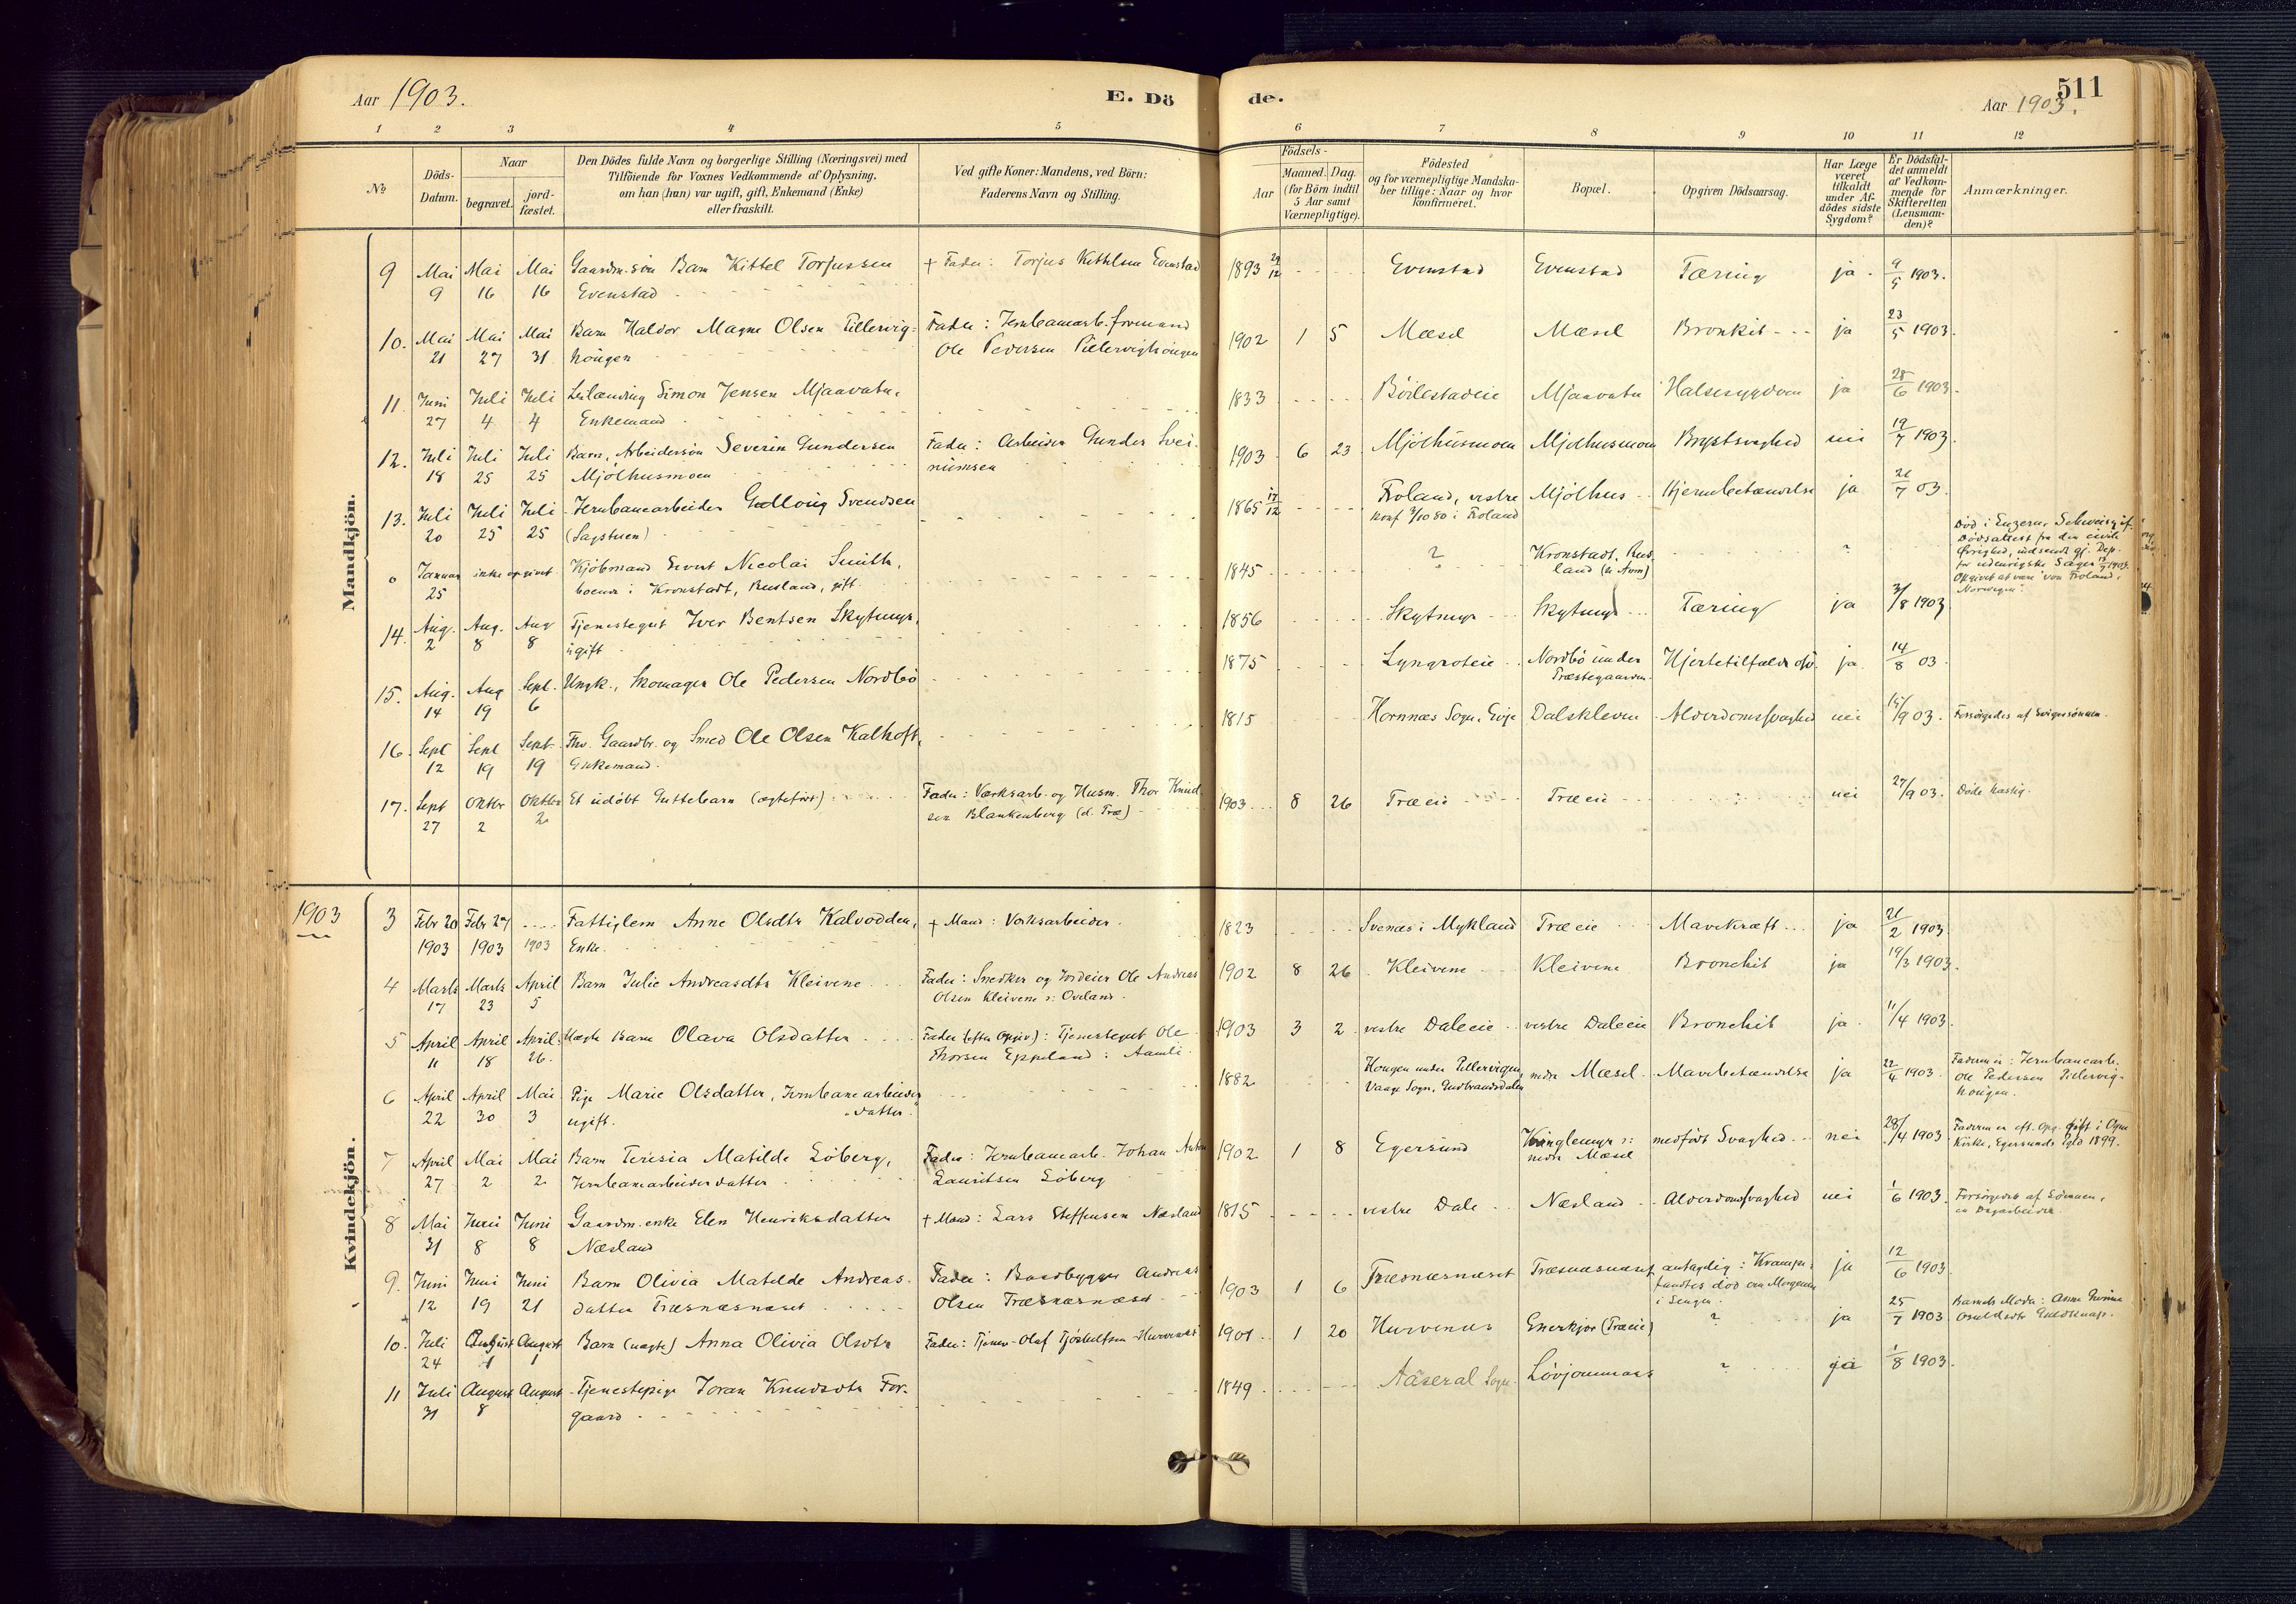 Aar 1903.
E. Dö
de.
511
Aar 1903.
1 2 3 4 5 6 7 8 9 10 11 12
No
Döds-
Datum.
Naar
begravet.
jord-
fæstet.
Den Dödes fulde Navn og borgerlige Stilling (Næringsvei) med
Tilföiende for Voxnes Vedkommende af Oplysning,
om han (hun) var ugift, gift, Enkemand (Enke)
eller fraskilt.
Ved gifte Koner: Mandens, ved Börn:
Faderens Navn og Stilling.
Födsels-
Aar
Maaned. Dag.
(for Börn indtil
5 Aar samt
Værnepligtige).
Födested
og for værnepligtige Mandska-
ber tillige: Naar og hvor
konfirmeret.
Bopæl.
Opgiven Dödsaarsag.
Har Læge
været
tilkaldt
under Af-
dödes sidste
Sygdom?
Er Dödsfal-
det anmeldt
af Vedkom-
mende for
Skifteretten
(Lensman-
den)?
Anmærkninger.
Mandkjön.
9 Mai Mai Mai Gaardm. sön Barn Kittel Torjussen + Fader: Torjus Kittelsen Evenstad 1893 29/12 Evenstad Evenstad Tæring ja. 9/5 1903.
9 16 16 Evenstad
10. Mai Mai Mai Barn Haldor Magne Olsen Pillervig- Fader: Jernbanearb. formand 1902 1 5 Mæsel Mæsel Bronkit ja 23/5 1903.
21 27 31 hougen Ole Pedersen Pillervighougen
11. Juni Juli Juli Leilænding Simon Jensen Mjaavatn, 1833 Böilestadeie Mjaavatn Halsesygdom ja 28/6 1903.
27 4 4 Enkemand
12. Juli Juli Juli Barn, Arbeidersön Severin Gundersen Fader: Arbeider Gunder Svei- 1903 6 23 Mjölhusmoen Mjölhusmoen Brystsvaghed nei 19/7 1903.
18 25 25 Mjölhusmoen
13. Juli Juli Juli Jernbanearbeider Svendsen 1865 17/12 Froland, vestre Mjölhus Hjernebetændelse ja 21/7 03.
20 25 25 (Sagstuen) Konf 3/10 80 i Froland
o Januar inke opgivet Kjöbmand Nicolai Smith, 1845 ? Kronstadt, Rus- ?
25 boende i Kronstadt, Rusland, gift. land (se Anm)
Död i Luzern, Schweiz if.
Dödsattest fra den civile
Övrighed, udsendt gj. Dep.
for udenrigske Sager
Opgivet at være "von Froland,
Norwegen".
14. Aug. Aug. Aug Tjenestegut Iver Bentsen Skytmyr, 1856 Skytmyr Skytmyr Tæring ja 3/8 1903
2 8 8 ugift
15. Aug. Aug Sept. Ungk., Skomager Ole Pedersen Nordbö 1875 Lyngroteie Nordbö under Hjertetilfælde ja. 14/8 03.
14 19 6 Præstegaarden
16. Sept Sept Sept. Fhv. Gaardbr. og Smed Ole Olsen Kalhoft, 1815 Hornnæs Sogn, Evje Dalskleven Alderdomssvaghed nei 15/9 03. Forsörgedes af Svigersönnen.
12 19 19 Enkemand.
17. Sept Oktbr Oktbr Et udöbt Guttebarn (ægtefödt) Fader: Værksarb. og Husm. Thor Knud- 1903 8 26 Træeie Træeie nei 27/9 03. Döde hastig.
27 2 2 sen Blankenberg (d. Træ)
Kvindekjön.
1903
3 Febr 20 Febr 27 Fattiglem Anne Olsdtr Kalvodden, + Mand: Verksarbeider. 1823 Svenæs i Mykland Træeie Mavekræft ja 21/2 1903
1903 1903 1903 Enke.
4 Marts Marts April Barn Julie Andreasdtr Kleivene Fader: Snedker og Jordeier Ole Andreas 1902 8 26 Kleivene Kleivene Bronchit ja 19/3 1903.
17 23 5 Olsen Kleivene s: Oveland.
5 April April April. Uægte Barn Olava Olsdatter Fader (efter Opgiv): Tjenestegut Ole 1903 3 2 vestre Daleeie vestre Daleeie Bronchit ja. 11/4 1903.
11 18 26. Thorsen Eppeland: Aamli.
6 April April Mai Pige Marie Olsdatter, Jernbanearbeider 1882 Hougen under Pillervigen, nedre Mæsel Mavebetændelse ja 22/4 1903.
22 30 3 ugift. datter. Vaage Sogn, Gudbrandsdalen
Faderen er: Jernbanearb.
Ole Pedersen Pillervig-
hougen.
7 April Mai Mai Barn Teresia Matilde Löberg, Fader: Jernbanearb. Johan Anton 1902 1 8 Egersund Kringlemyr s: medfödt Svaghed nei 28/4 1903
27 2 2 Jernbanearbeiderdatter Lauritsen Löberg nedre Mæsel
Faderen er eft. Opg. gift i Ogne
Kirke, Egersunds Pgld 1899.
8 Mai Juni Juni Gaardm. enke Elen Henriksdatter + Mand: Lars Steffensen Næsland 1815 vestre Dale Næsland Alderdomssvaghed nei 1/6 1903. Forsörgedes af Sönnen,
31 8 8 Næsland en Dagarbeider.
9. Juni Juni Juni Barn Olivia Matilde Andreas- Fader: Baadbygger Andreas 1903 1 6 Træsnæsnæset Træsnæsnæset antagelig: Krampe; ja 12/6 1903.
12 19 21 datter Træsnæsnæset Olsen Træsnæsnæset fandtes död om Morgenen
i Sengen.
10. Juli August August Barn (uægte) Anna Olivia Olsdtr Fader: Tjener Olaf Hurvenæs 1901 1 20 Hurvenæs Enerkjær (Træeie) ? ja 25/7 1903
24 1 1
Barnets Moder: Anne
11 Juli August August Tjenestepige Joran Knudsdtr For- 1849 Aaseral Sogn. Lövjommaas ? ja 1/8 1903.
31 8 gaard